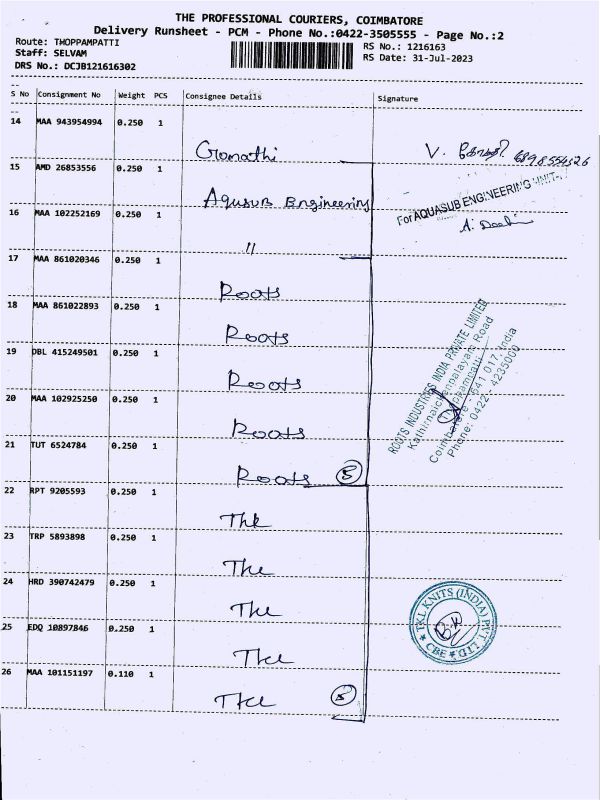 THE PROFESSIONAL COURIERS, COIMBATORE
Delivery Runsheet - PCM - Phone No.:0422-3505555 - Page No.:2
Route: THOPPAMPATTI
Staff: SELVAM
DRS No.: DCJB121616302
RS No.: 1216163
RS Date: 31-Jul-2023
S No Consignment No Weight PCS Consignee Details Signature
14 MAA 943954994 0.250 1
Gomathi V. கோமதி
15 AMD 26853556 0.250 1
Aqusub Engineering
For AQUASUB ENGINEERING UNIT-
16 MAA 102252169 0.250 1
"
17 MAA 861020346 0.250 1
Roots
18 MAA 861022893 0.250 1
Roots
19 DBL 415249501 0.250 1
Roots
20 MAA 102925250 0.250 1
Roots
21 TUT 6524784 0.250 1
Roots 5
ROOTS INDUSTRIES INDIA PRIVATE LIMITED
Kathirnaickenpalayam Road
Thoppampatti
Coimbatore - 641 017. India
Phone: 0422 - 4235000
22 RPT 9205593 0.250 1
Tkl
23 TRP 5893898 0.250 1
Tkl
24 HRD 390742479 0.250 1
Tkl
25 EDQ 10897846 0.250 1
Tkl
26 MAA 101151197 0.110 1
Tkl 5
TKL KNITS (INDIA) PVT. LTD
CBE